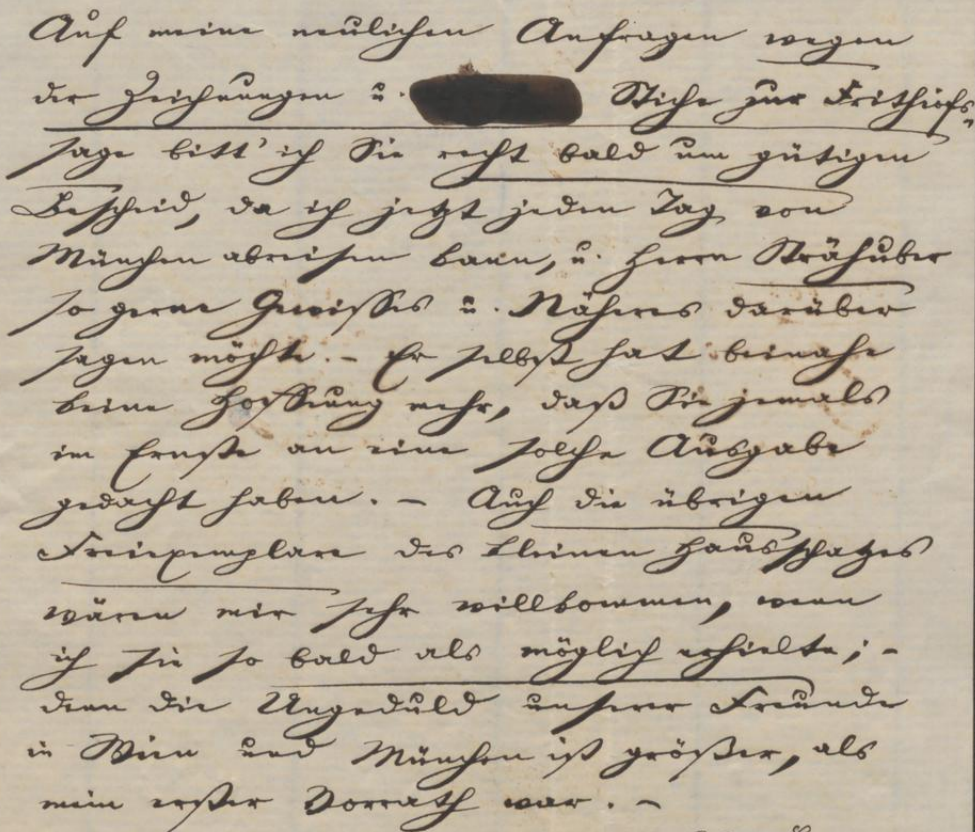 Auf meine neulichen Anfragen wegen
der Zeichnungen u. Stiche zur Frithiofs-
sage bitt' ich Sie recht bald um gütigen
Bescheid, da ich jetzt jeden Tag von
München abreisen kann, u. Herrn Strähuber
so gerne Gewisses u. Näheres darüber
sagen möchte. – Er selbst hat beinahe
keine Hoffnung mehr, daß Sie jemals
im Ernste an eine solche Ausgabe
gedacht haben. – Auch die übrigen
Freiexemplare des kleinen Hausschatzes
wären mir sehr willkommen, wenn
ich sie so bald als möglich erhielte; –
denn die Ungeduld unserer Freunde
in Wien und München ist größer, als
mein erster Vorrath war. –